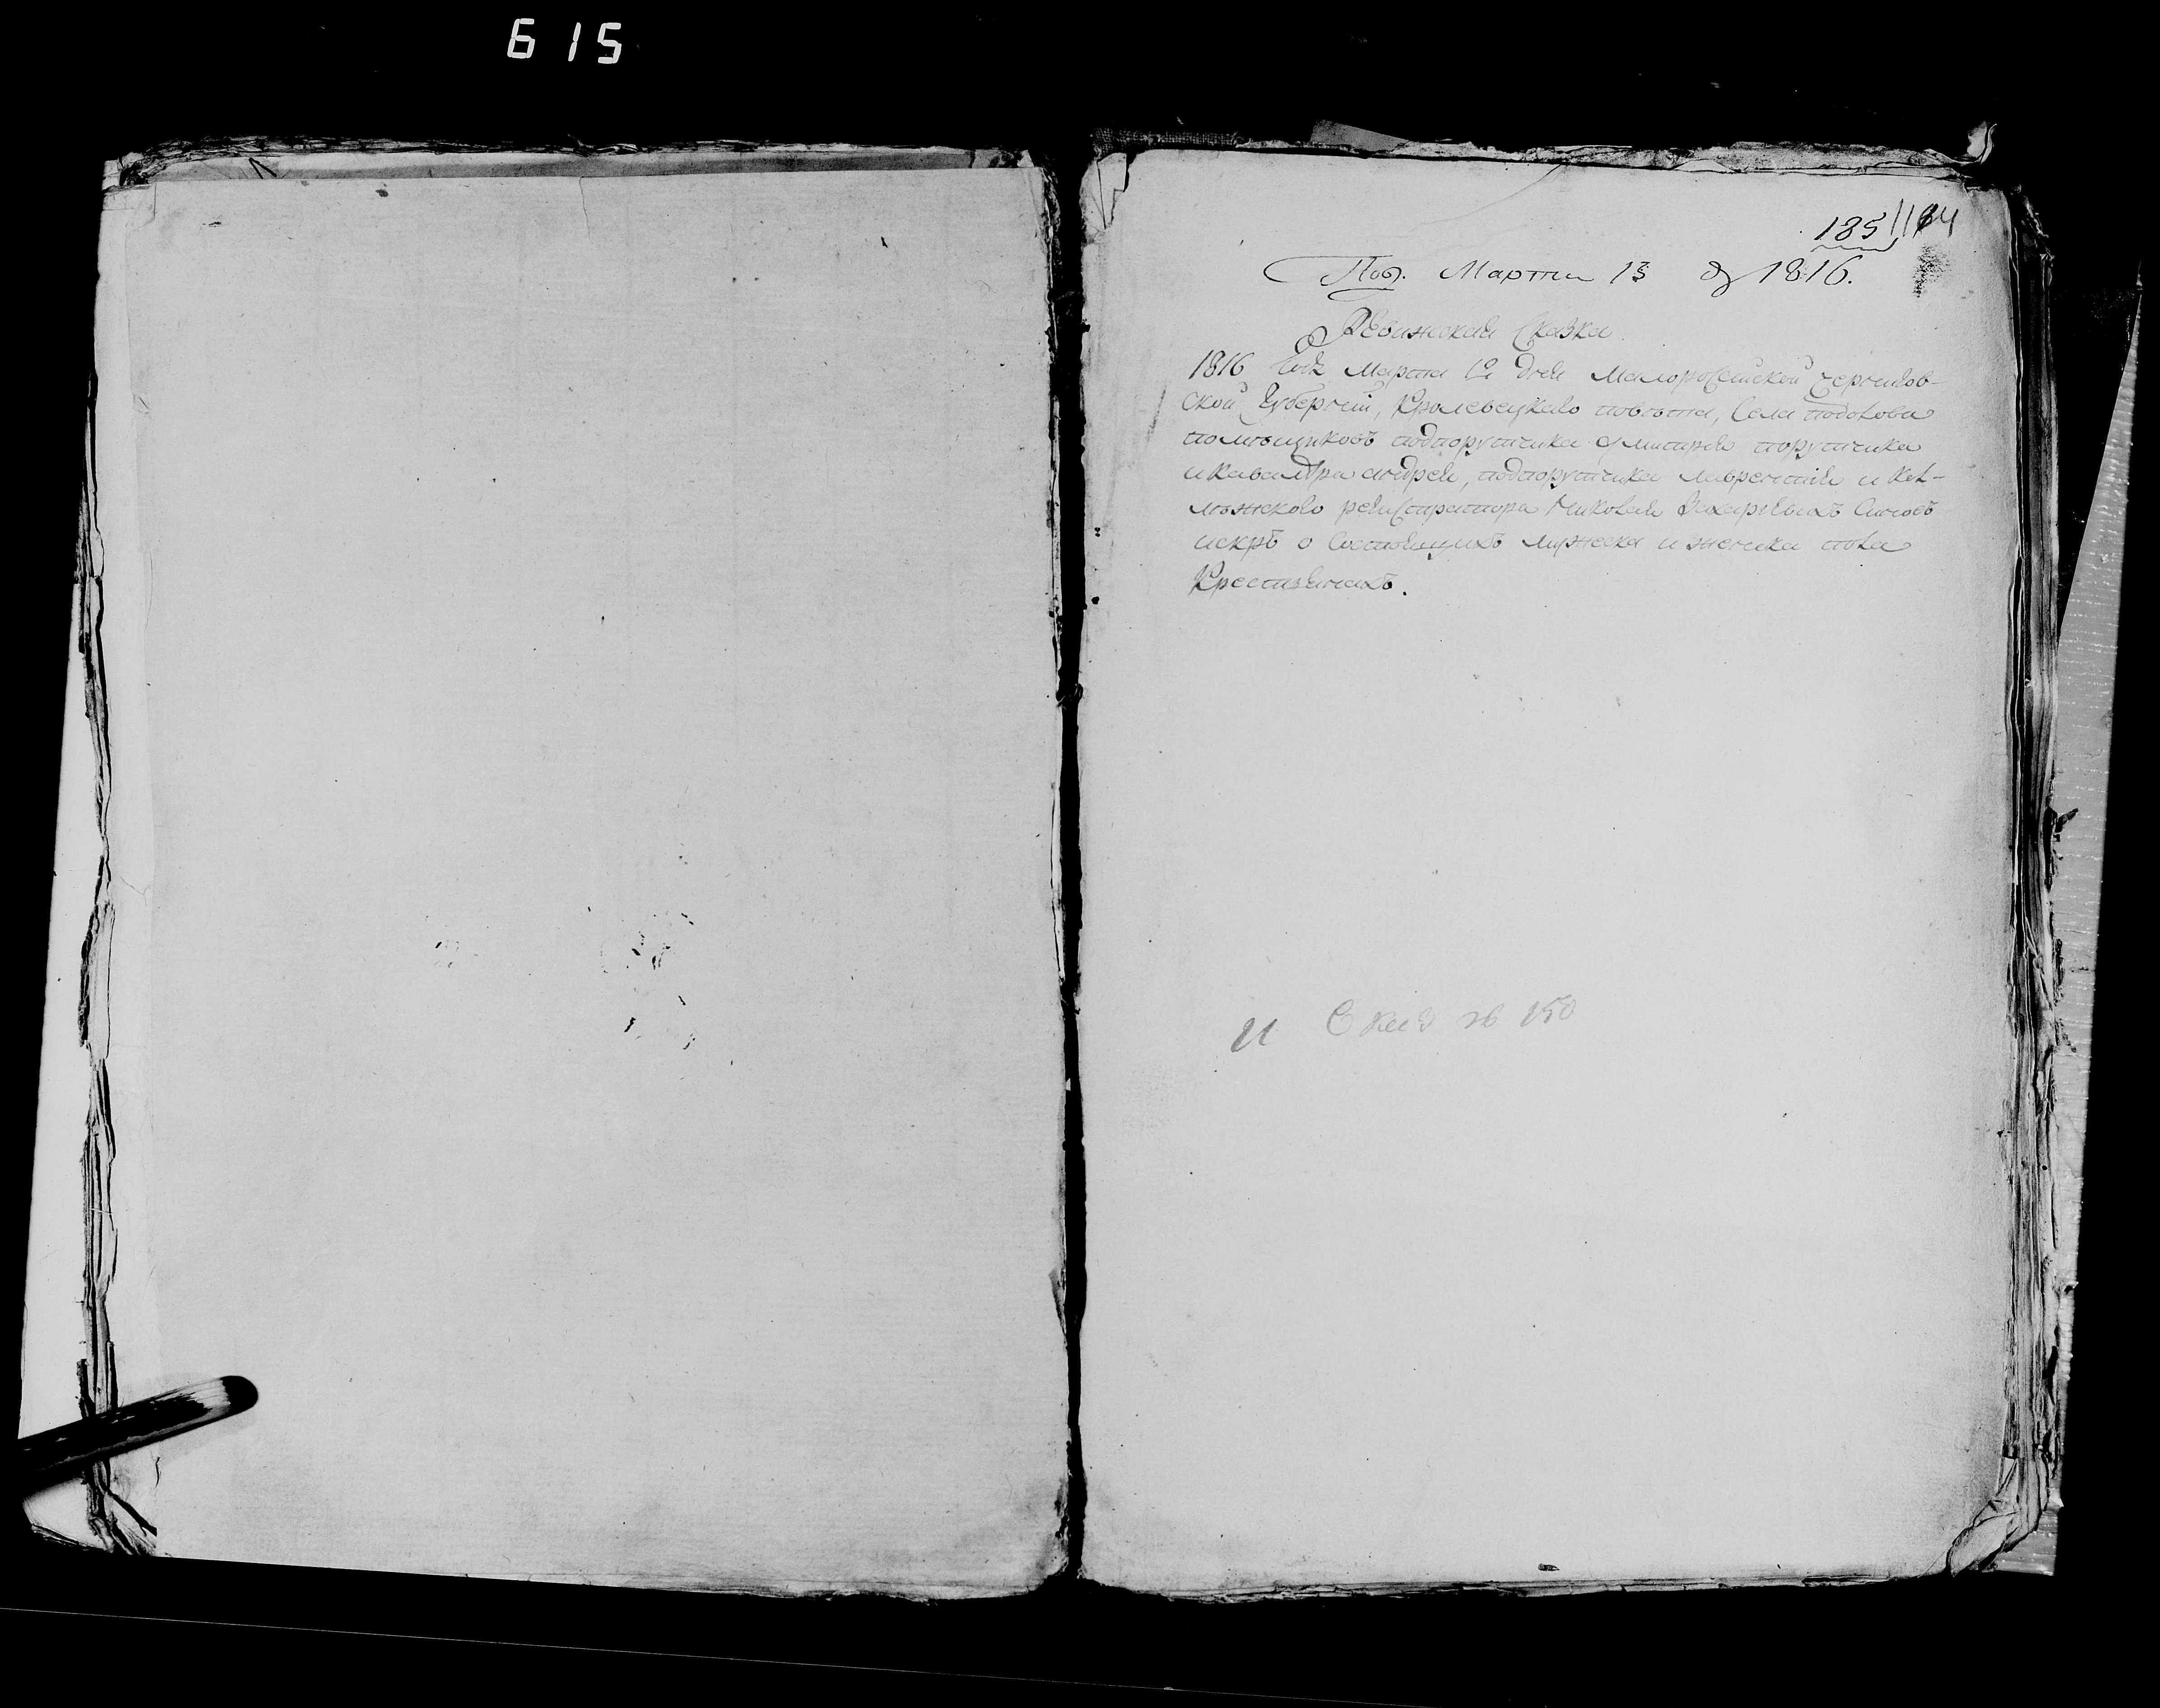 615
185
Под. Марта 13 д 1816.
Ревижская Сказка
1816 года Марта 1го дня Малоросейской Чернигов-
ской Губернии, Кролевецкаго повѣта, Села подолова
помѣщиковъ подпорутчика Дмитрия порутчика
и Кавалѣра андрея, подпорутчика лаврентия и Кол-
лѣжского регистратора Николая Захариевыхъ Синовъ
искръ о Состоящихъ мужеска и женска пола
Крестьянахъ.